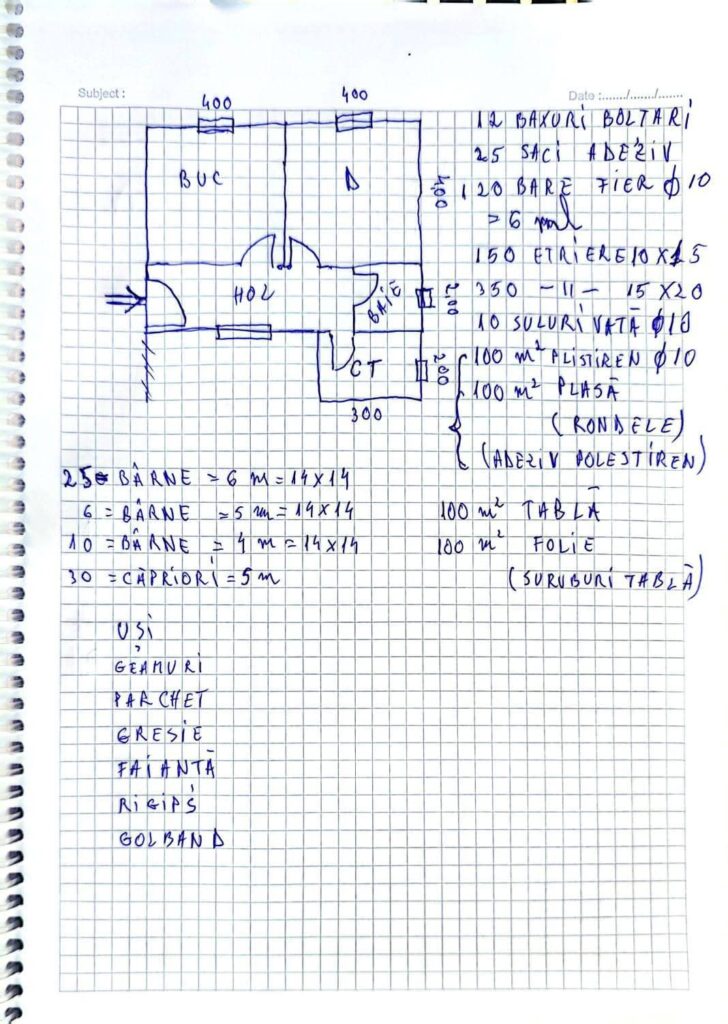 Subject :
Date :......./......./.......
400
400
BUC
D
400
HOL
BAIE
200
CT
200
300
12 BAXURI BOLTARI
25 SACI ADEZIV
120 BARE FIER ϕ10
= 6 ml
150 ETRIERE 10X15
350 -11- 15X20
10 SULURI VATĂ ϕ10
100 m² PLISTIREN ϕ10
100 m² PLASĂ
(RONDELE)
(ADEZIV POLESTIREN)
25 = BÂRNE = 6 m = 14X14
6 = BÂRNE = 5 m = 14X14
10 = BÂRNE = 4 m = 14X14
30 = CĂPRIORI = 5 m
100 m² TABLĂ
100 m² FOLIE
(SURUBURI TABLĂ)
UȘI
GEAMURI
PARCHET
GRESIE
FAIANTĂ
RIGIPS
GOLBAND